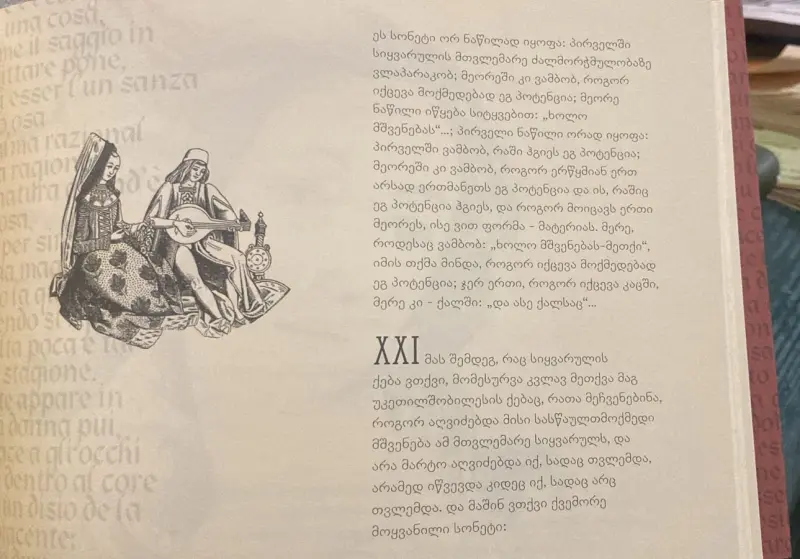 una cosa,
me il saggio in
dittare pone,
esser l'un sanza
osa
alma razional
ragion
natura
cosa
per sir
sua mag
la q
endo si
lta poca è
stagione.
te appare in
donna pui
ace a gl'occhi
dentro al core
un disio de la
iacente;
ეს სონეტი ორ ნაწილად იყოფა: პირველში
სიყვარულის მთვლემარე ძალმორჭმულობაზე
ვლაპარაკობ; მეორეში კი ვამბობ, როგორ
იქცევა მოქმედებად ეგ პოტენცია; მეორე
ნაწილი იწყება სიტყვებით: „ხოლო
მშვენებას“...; პირველი ნაწილი ორად იყოფა:
პირველში ვამბობ, რაში ჰგიეს ეგ პოტენცია;
მეორეში კი ვამბობ, როგორ ერწყმიან ერთ
არსად ერთმანეთს ეგ პოტენცია და ის, რაშიც
ეგ პოტენცია ჰგიეს, და როგორ მოიცავს ერთი
მეორეს, ისე ვით ფორმა - მატერიას. მერე,
როდესაც ვამბობ: „ხოლო მშვენებას-მეთქი“,
იმის თქმა მინდა, როგორ იქცევა მოქმედებად
ეგ პოტენცია; ჯერ ერთი, როგორ იქცევა კაცში,
მერე კი - ქალში: „და ასე ქალსაც“...
XXI მას შემდეგ, რაც სიყვარულის
ქება ვთქვი, მომესურვა კვლავ მეთქვა მაგ
უკეთილშობილესის ქებაც, რათა მეჩვენებინა,
როგორ აღვიძებდა მისი სასწაულთმოქმედი
მშვენება ამ მთვლემარე სიყვარულს, და
არა მარტო აღვიძებდა იქ, სადაც თვლემდა,
არამედ იწვევდა კიდეც იქ, სადაც არც
თვლემდა. და მაშინ ვთქვი ქვემორე
მოყვანილი სონეტი: